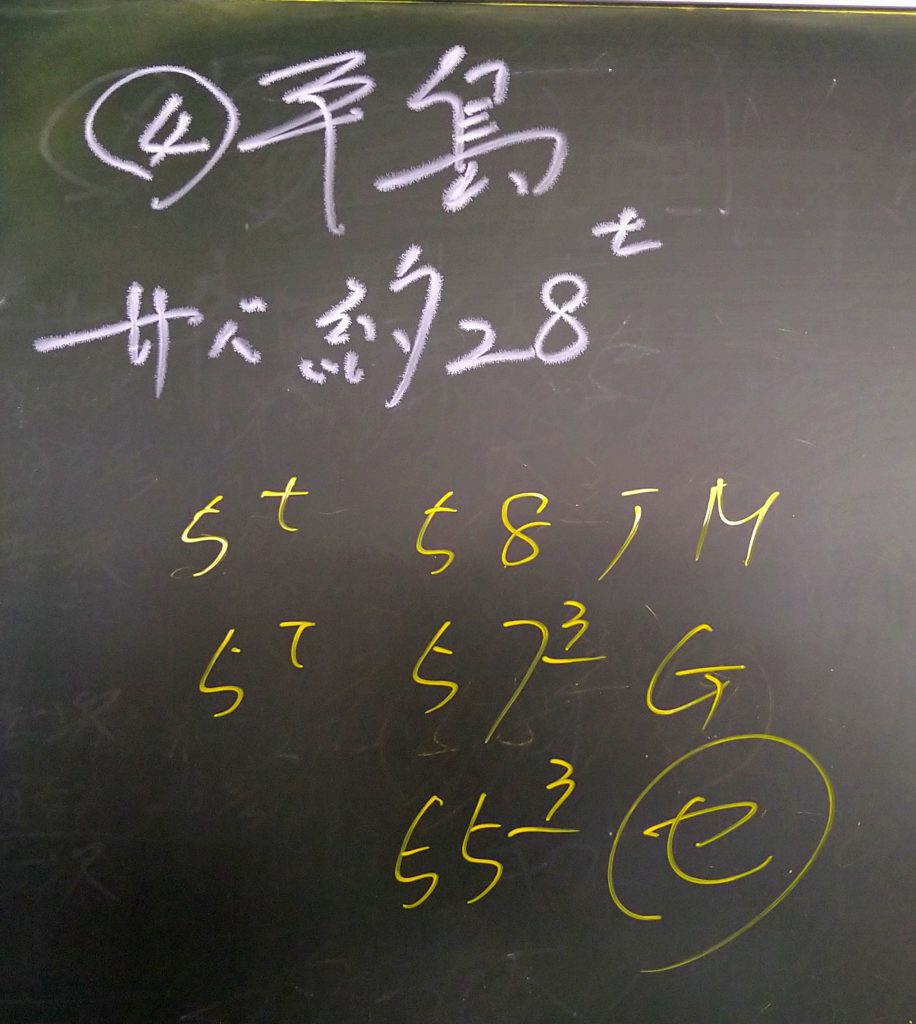 ④平島
サバ約28t
5t 58 JM
5t 57³ G
55³ セ